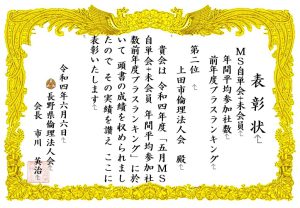 表彰状
MS自単会+未会員
年間平均参加社数
前年度プラスランキング
第二位
上田市倫理法人会 殿
貴会は 令和四年度「五月MS
自単会+未会員 年間平均参加社
数前年度プラスランキング」に於
いて 頭書の成績を収められまし
たので その実績を讃え ここに
表彰いたします
令和四年六月六日
長野県倫理法人会
会長 市川 英治